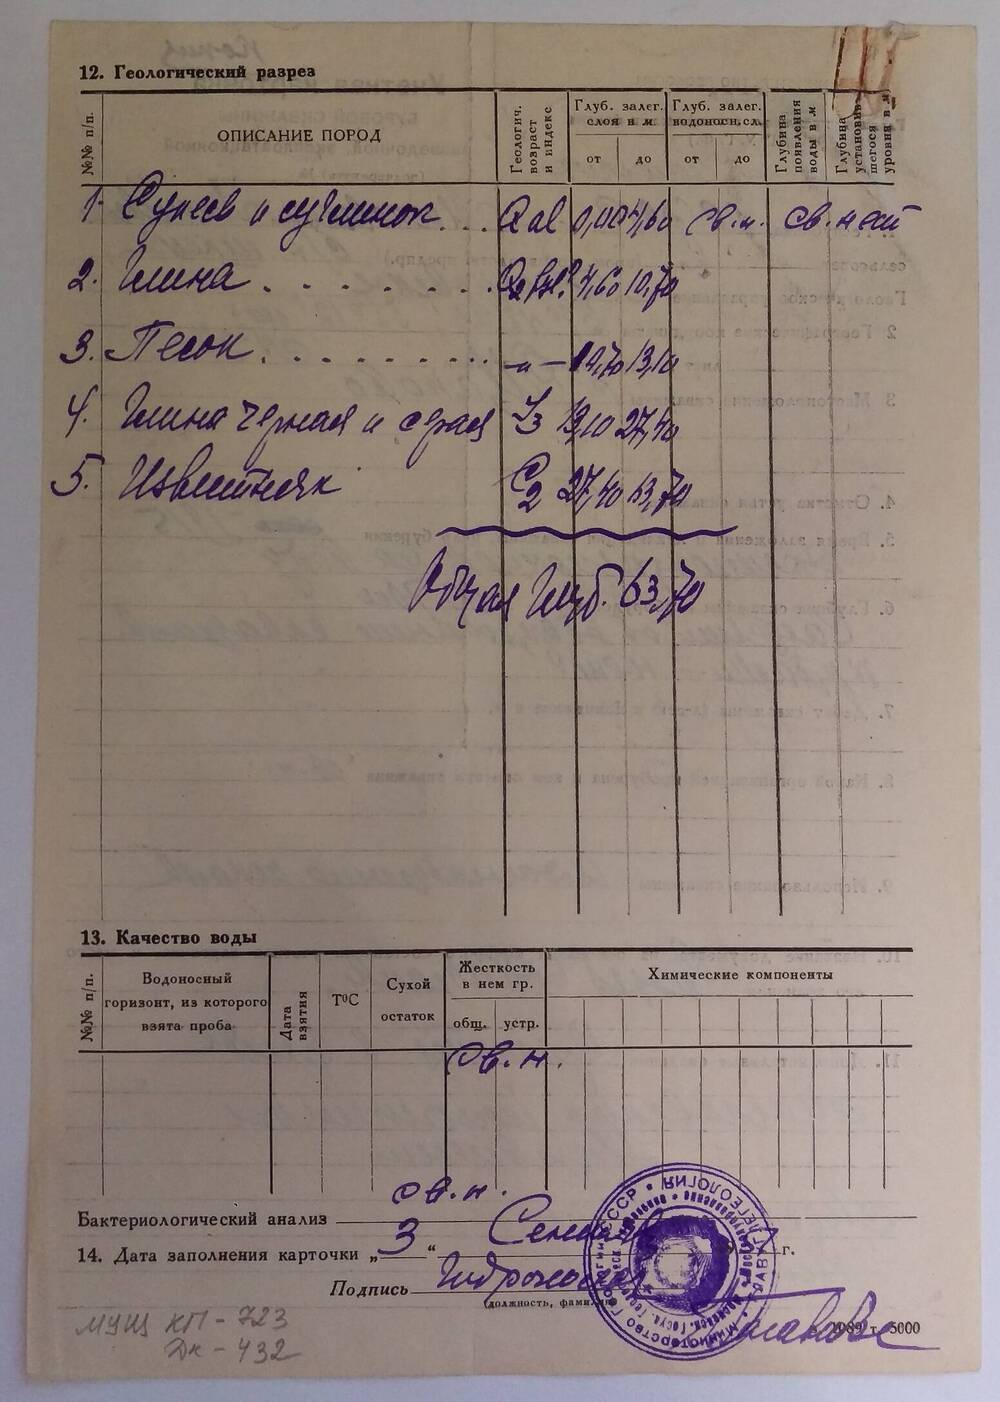 12. Геологический разрез
№№ п/п.
ОПИСАНИЕ ПОРОД
Геологич. возраст и индекс
Глуб. залег. слоя в м.
от до
Глуб. залег. водоносн. сл.
от до
Глубина появления воды в м
Глубина установившегося уровня в м
1. Супесь и суглинок . . . Q al 0,00 4,60 св. н. св. нет
2. Глина . . . . . . . 4,60 10,70
3. Песок . . . . . . . . . . –"– 10,70 13,10
4. Глина черная и серая J3 13,10 27,40
5. Известняк C2 27,40 63,70
Общая глуб. 63,70
13. Качество воды
№№ п/п.
Водоносный горизонт, из которого взята проба
Дата взятия
Т°С
Сухой остаток
Жесткость в нем гр.
общ. устр.
Химические компоненты
св. н.
Бактериологический анализ св. н.
14. Дата заполнения карточки „ 3 “ г.
Подпись
(должность, фамилия
1989 т. 5000
МУЩ КП - 723
Дк - 432